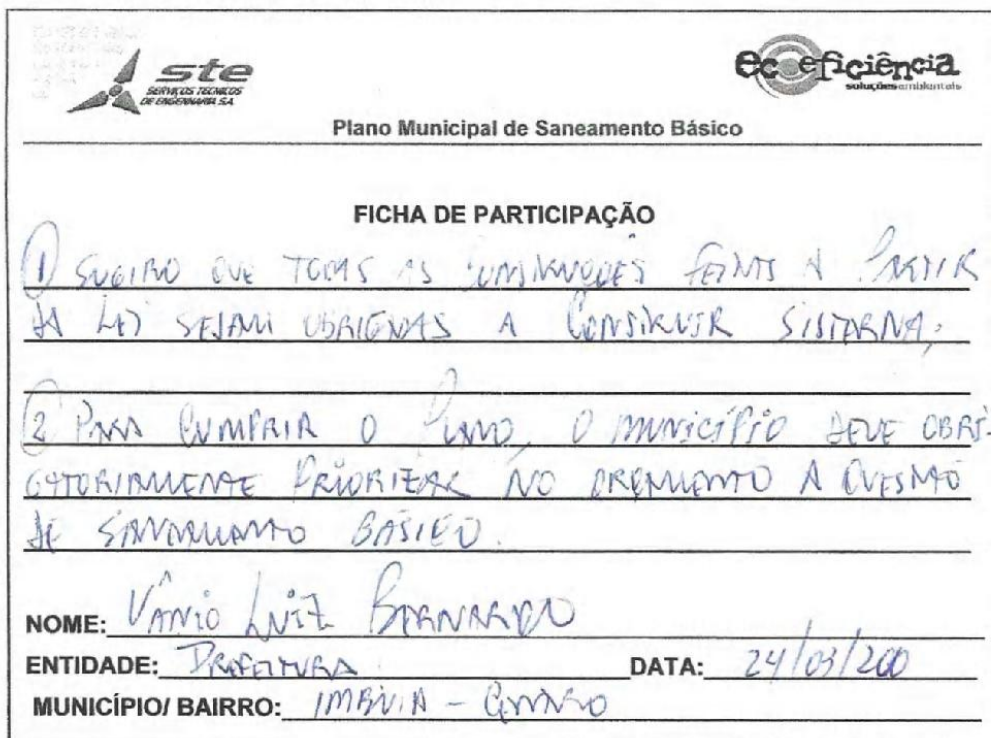 ste
SERVIÇOS TÉCNICOS
DE ENGENHARIA S.A.
ecoeficiência
soluções ambientais
Plano Municipal de Saneamento Básico
FICHA DE PARTICIPAÇÃO
1) SUGIRO QUE TODAS AS CONSTRUÇÕES FEITAS A PARTIR
DA LEI SEJAM OBRIGADAS A CONSTRUIR SISTERNA;
2 PARA CUMPRIR O PLANO, O MUNICÍPIO DEVE OBRI-
GATORIAMENTE PRIORIZAR NO ORÇAMENTO A QUESTÃO
DE SANEAMENTO BÁSICO.
NOME: VÂNIO LUIZ BERNARDO
ENTIDADE: PREFEITURA DATA: 24/03/200
MUNICÍPIO/ BAIRRO: IMBUIA - CENTRO